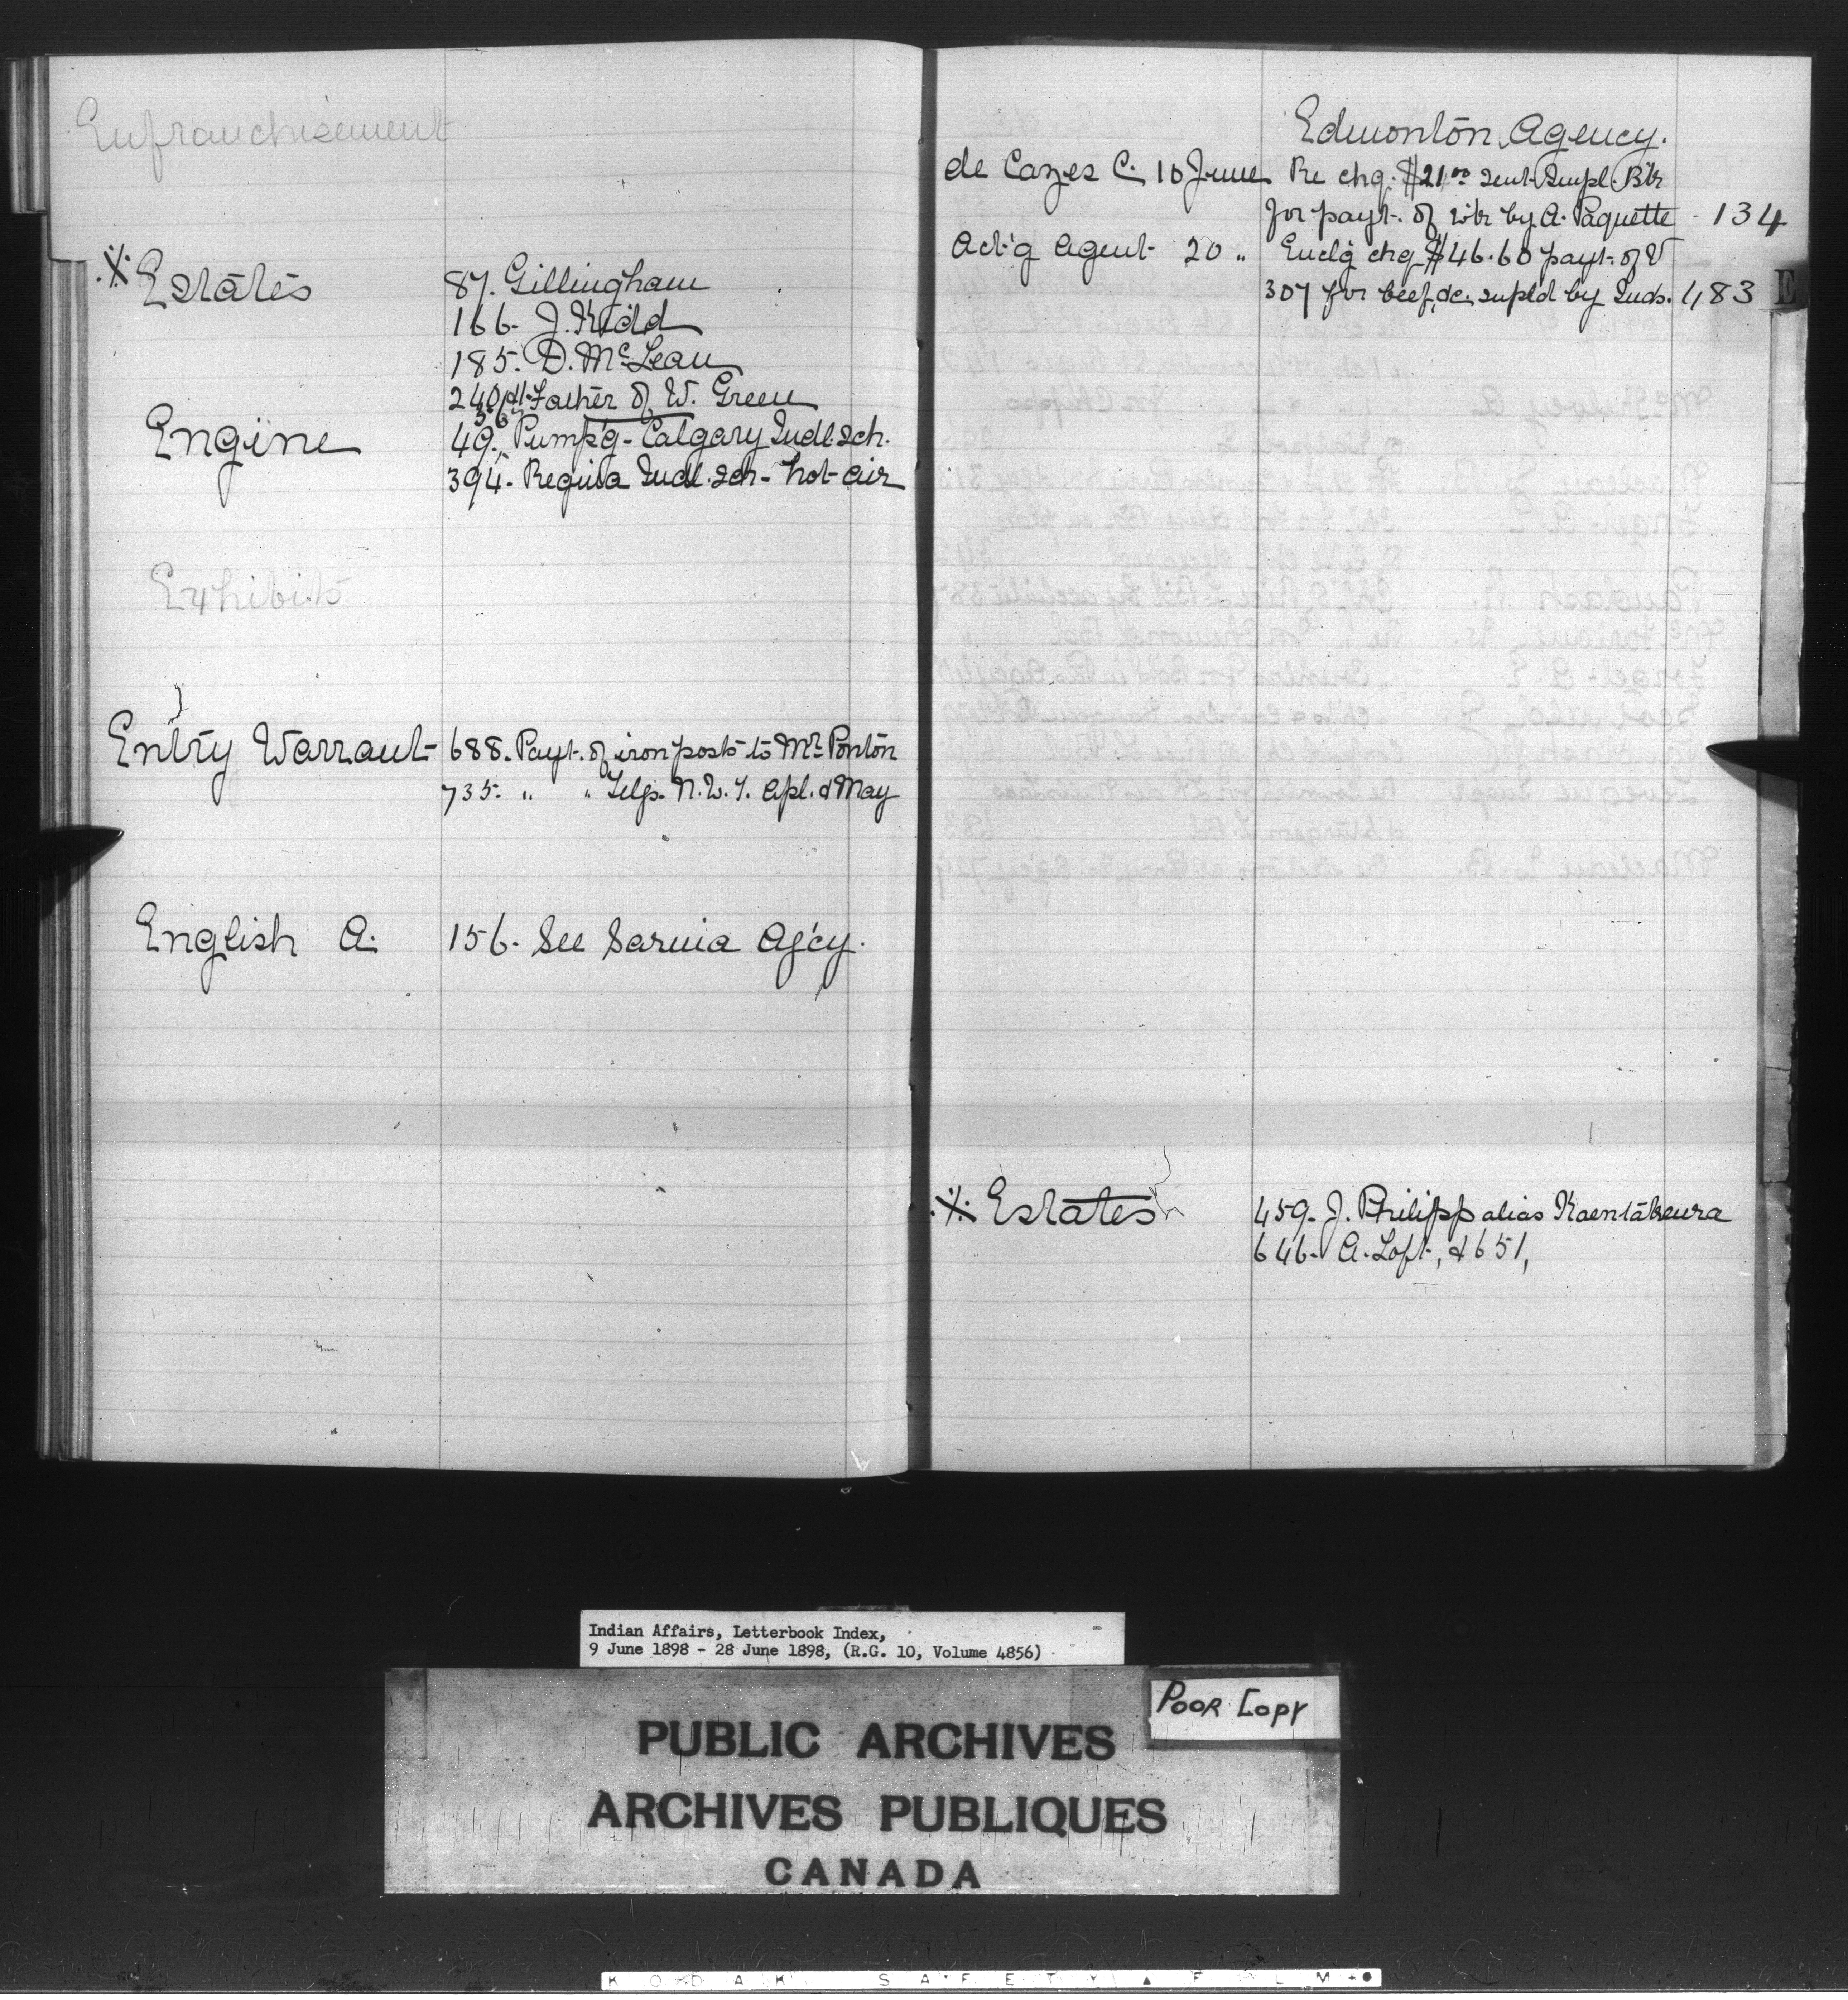 Enfranchisement
※ Estates 87. Gillingham
166. J. Kidd
185. D. McLean
240 Father of W. Green
Engine 49. Pump'g - Calgary Indl. Sch.
394. Regina Indl. Sch - hot air
Exhibits
Entry Warrant 688. Payt. of iron posts to Mr. Ponton
735. " " Telgs. N.W.T. Apl. & May
English A. 156. See Sarnia Ag'cy.
Edmonton Agency.
de Cazes C. 10 June Re chq. $21.00 sent Impl. Bk
for payt. of by A. Paquette - 134
Act'g Agent 20 " Enclg chq $46.60 payt. of V
307 for beef, &c. supld by Inds. 483
E
※ Estates 459. J. Philipp alias
646. A. Loft, & 651,
Indian Affairs, Letterbook Index,
9 June 1898 - 28 June 1898, (R.G. 10, Volume 4856)
POOR COPY
PUBLIC ARCHIVES
ARCHIVES PUBLIQUES
CANADA
KODAK SAFETY ▲ FILM